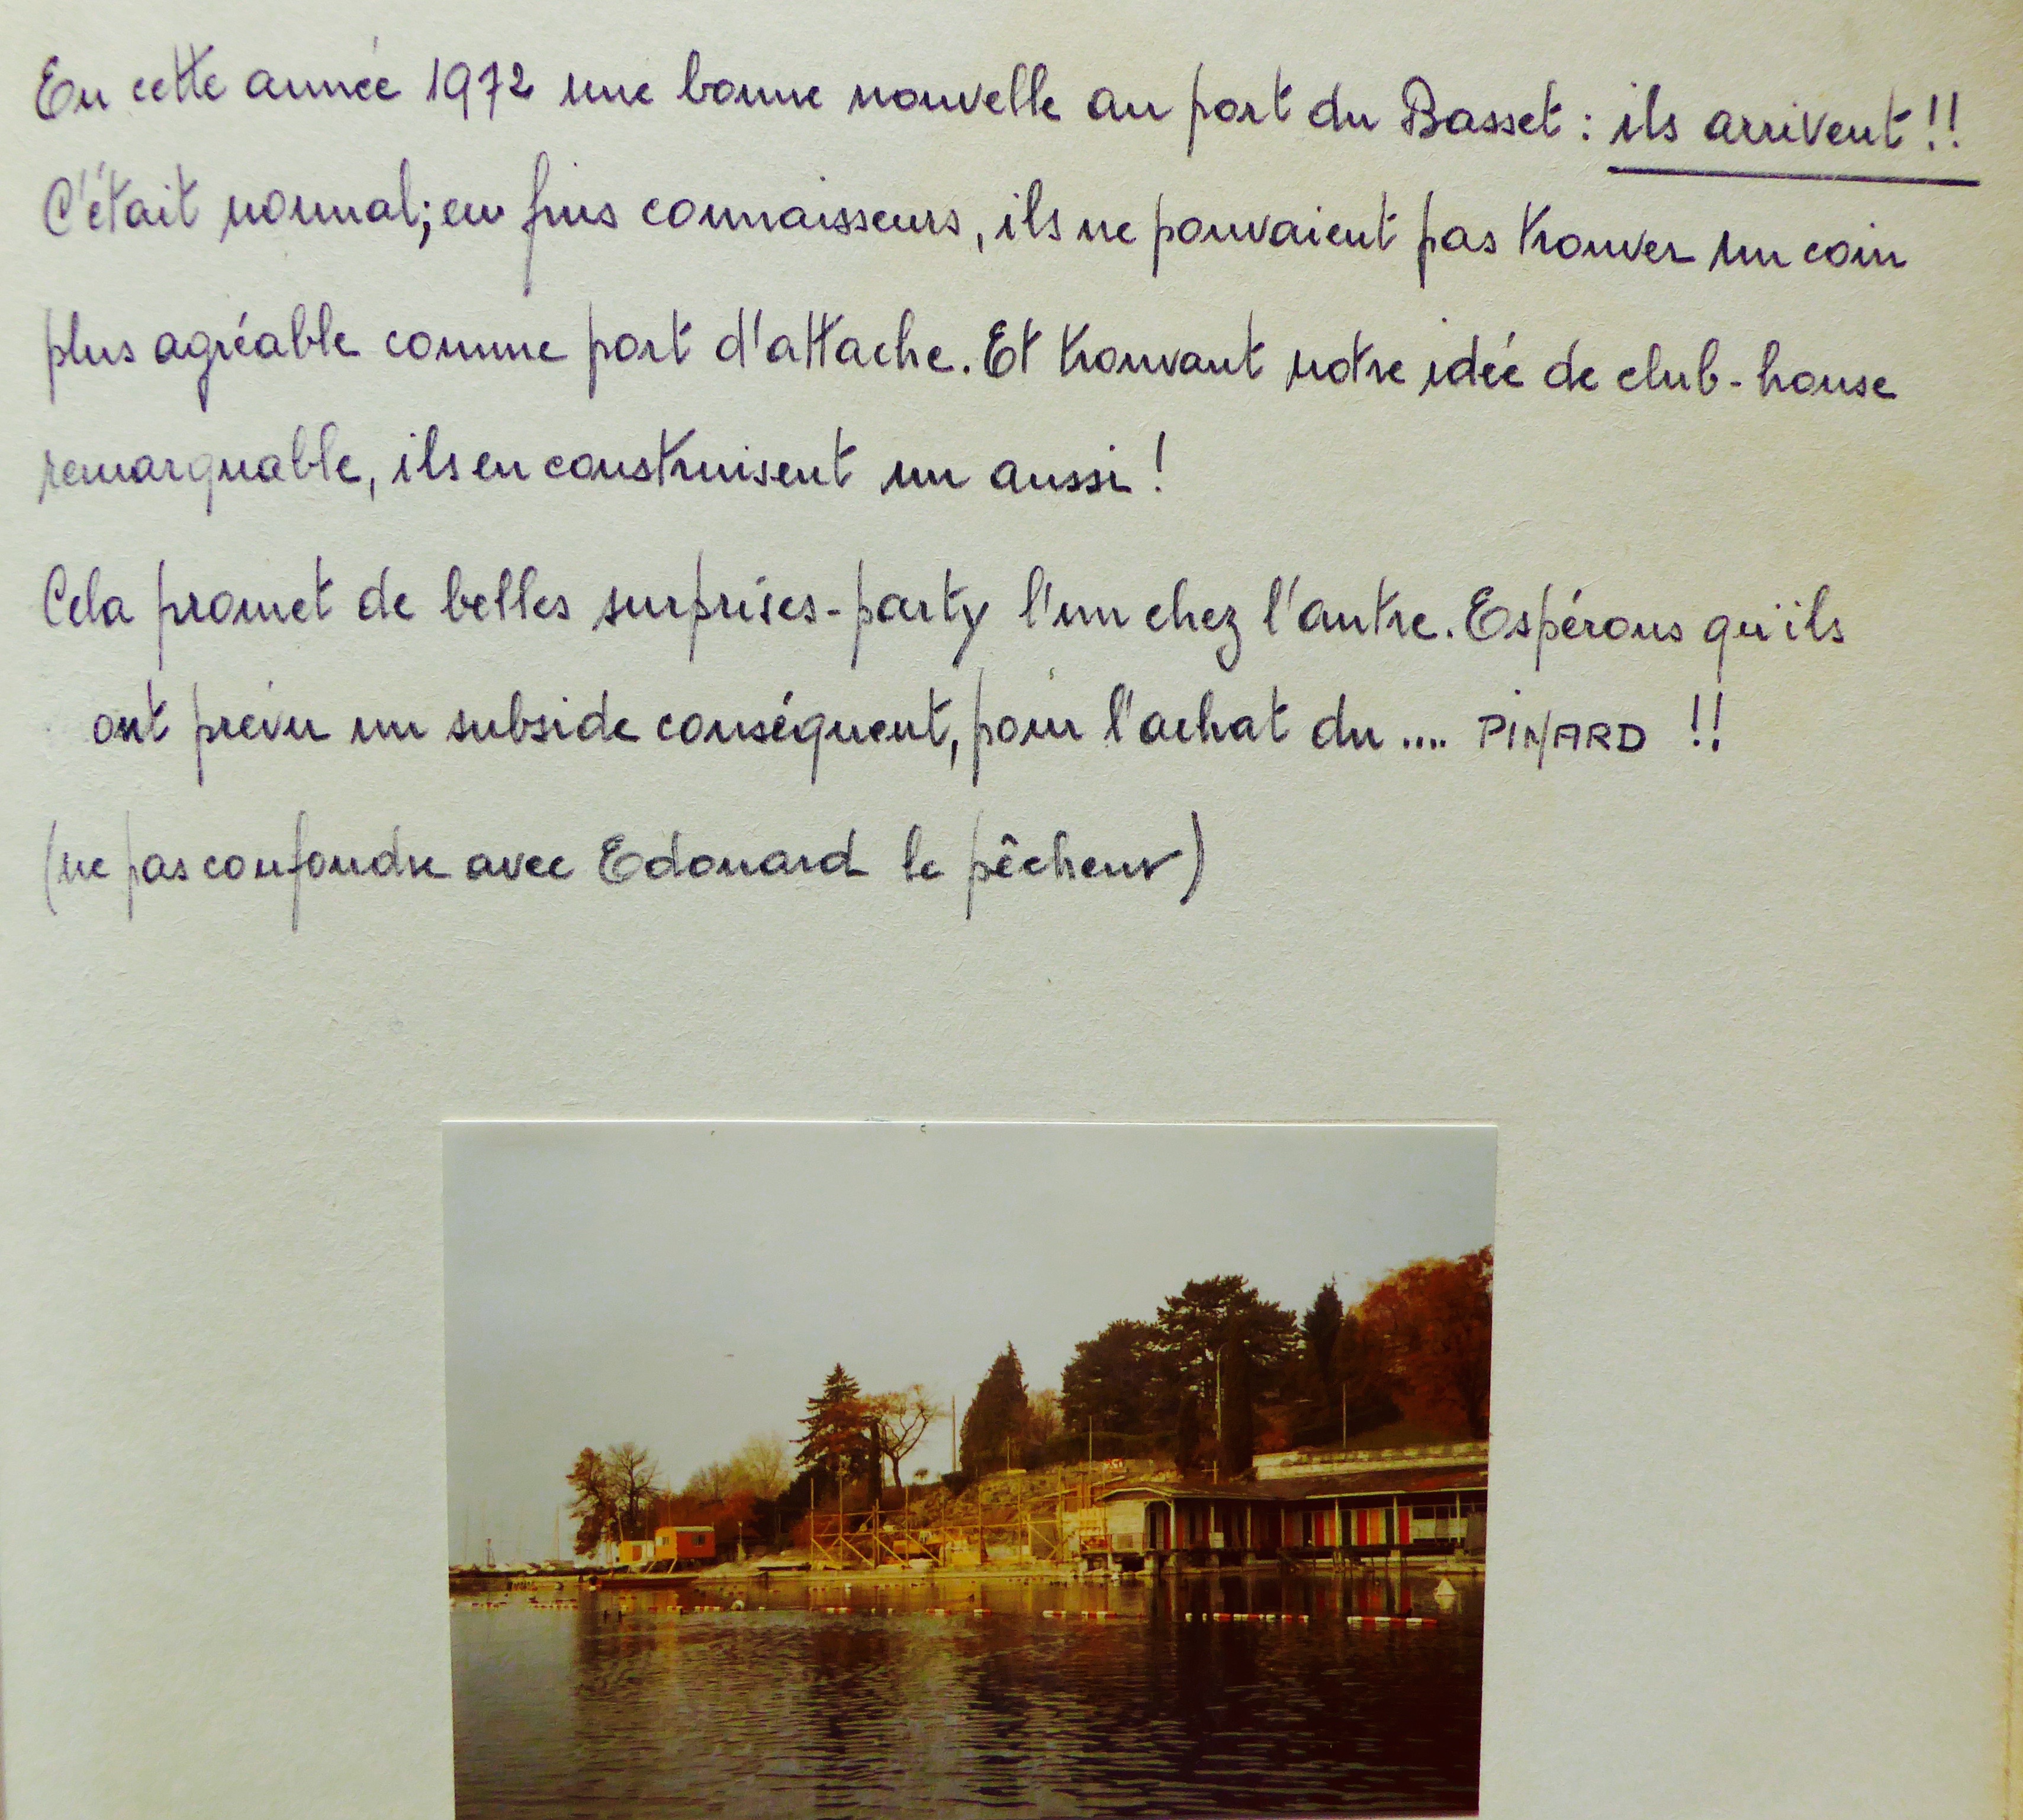 En cette année 1972 une bonne nouvelle au port du Basset : ils arrivent !!
C'était normal; en fins connaisseurs, ils ne pouvaient pas trouver un coin
plus agréable comme port d'attache. Et trouvant notre idée de club-house
remarquable, ils en construisent un aussi !
Cela promet de belles surprises-party l'un chez l'autre. Espérons qu'ils
ont prévu un subside conséquent, pour l'achat du .... PINARD !!
(ne pas confondre avec Edouard le pêcheur)